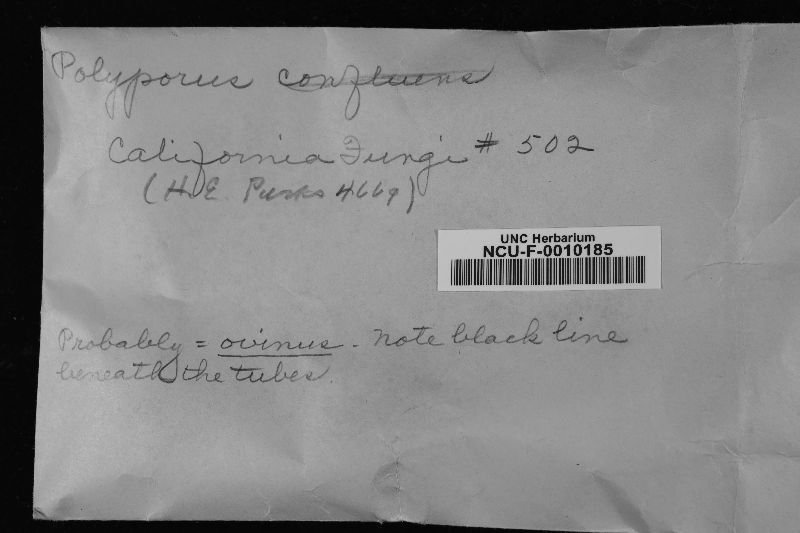 Polyporus confluens
California Fungi # 502
(H.E. Parks 4669)
UNC Herbarium
NCU-F-0010185
Probably = ovinus - note black line
beneath the tubes.